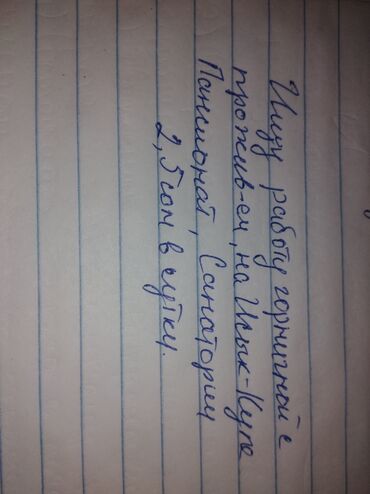 Ищу работу горничной с
прожив-ем, на Иссык-Куле
Пансионат, Санаторий
2,5 сом в сутки.